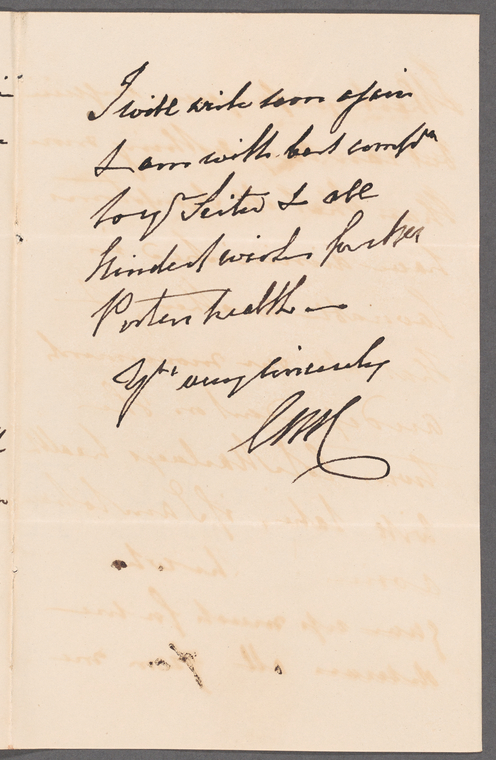 I will write soon again
& am with best compts
to yr Sister & all
kindest wishes for Mrs
Porters health —
Yrs very sincerely